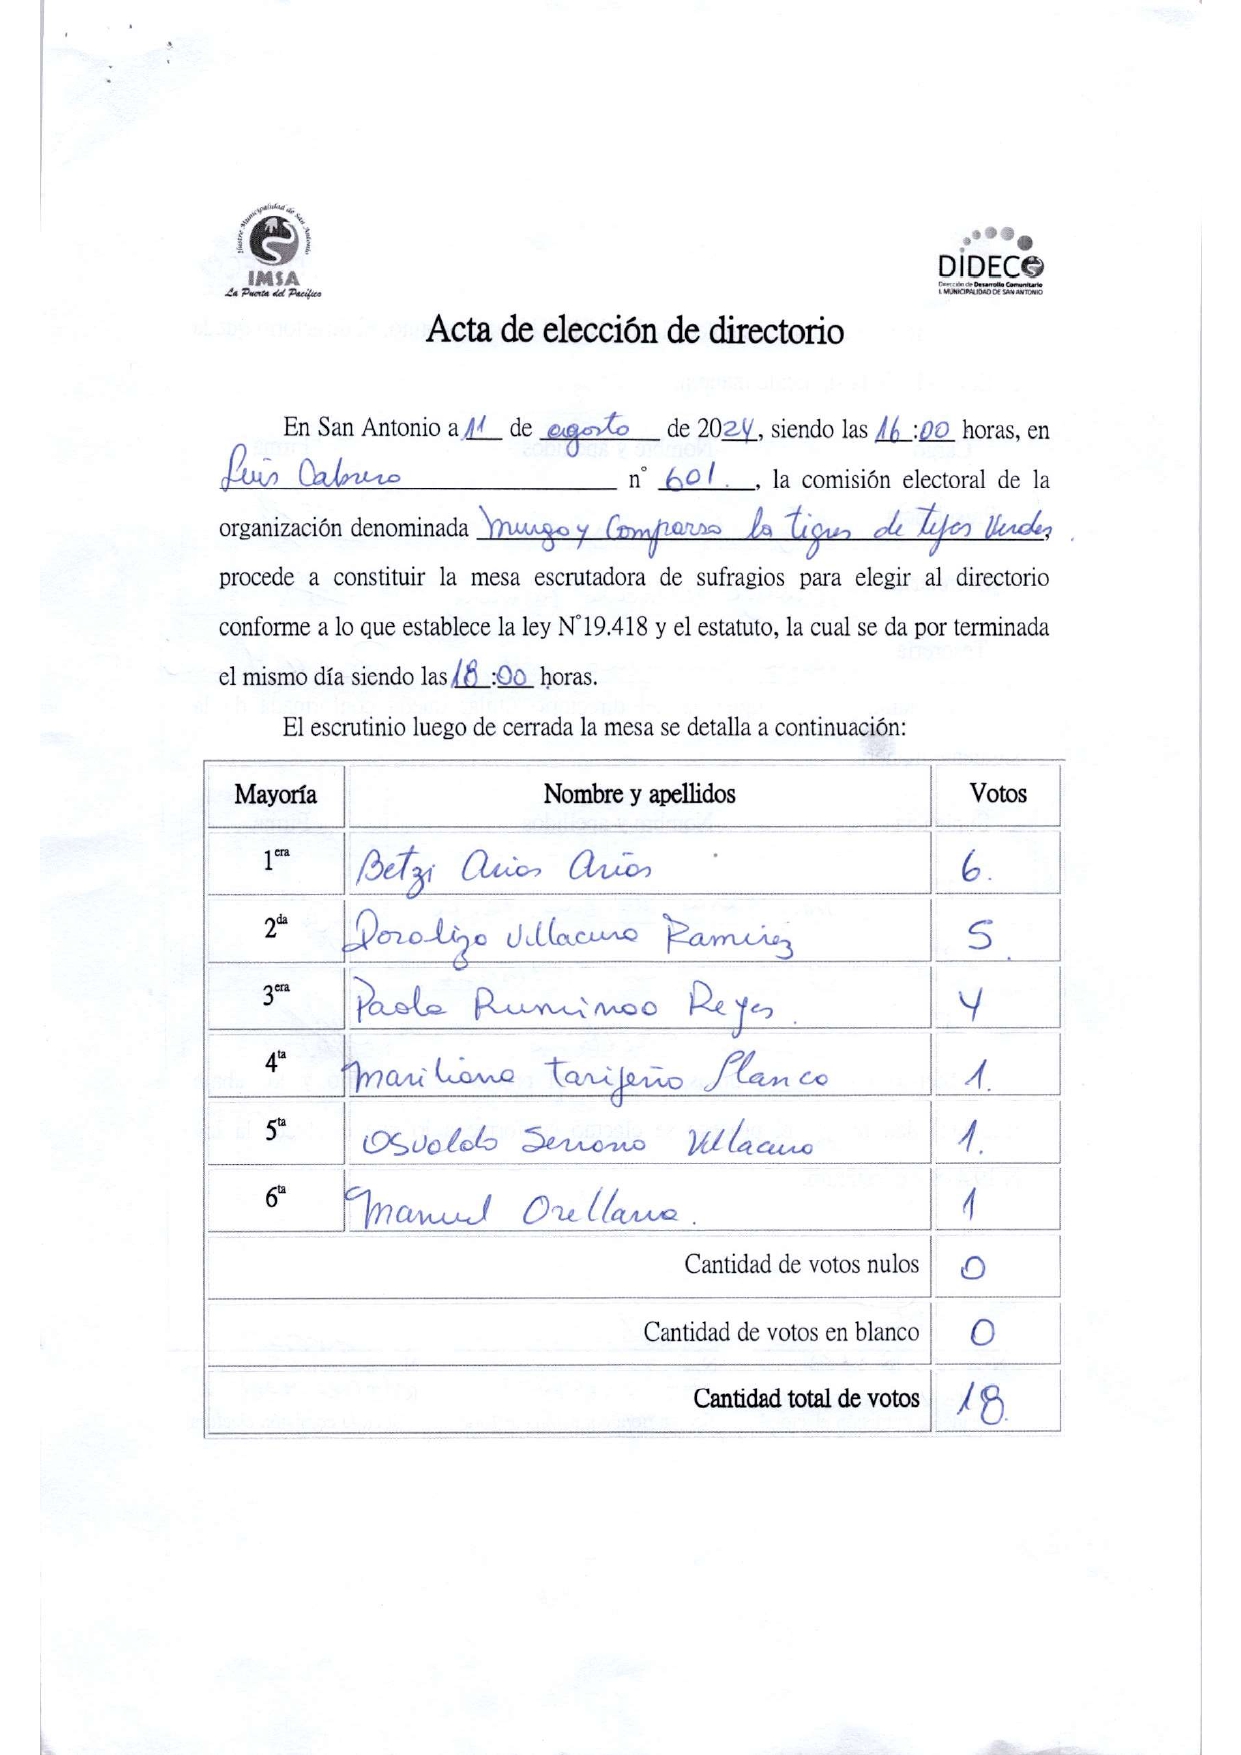 Ilustre Municipalidad de San Antonio
IMSA
La Puerta del Pacífico
DIDECO
Dirección de Desarrollo Comunitario
I. MUNICIPALIDAD DE SAN ANTONIO
Acta de elección de directorio
En San Antonio a 11 de agosto de 2024, siendo las 16:00 horas, en
Luis Cabrera n° 601., la comisión electoral de la
organización denominada Murga y Comparsa la tigres de tejas Verdes,
procede a constituir la mesa escrutadora de sufragios para elegir al directorio
conforme a lo que establece la ley N°19.418 y el estatuto, la cual se da por terminada
el mismo día siendo las 18:00 horas.
El escrutinio luego de cerrada la mesa se detalla a continuación:
Mayoría Nombre y apellidos Votos
1era Betzi Arias Arias 6.
2da Doraliza Villacura Ramirez 5.
3era Paola Ruminao Reyes. 4
4ta Mariliana Tarifeño Planco 1.
5ta Osvaldo Serrano Villacura 1.
6ta Manuel Orellana. 1
Cantidad de votos nulos 0
Cantidad de votos en blanco 0
Cantidad total de votos 18.